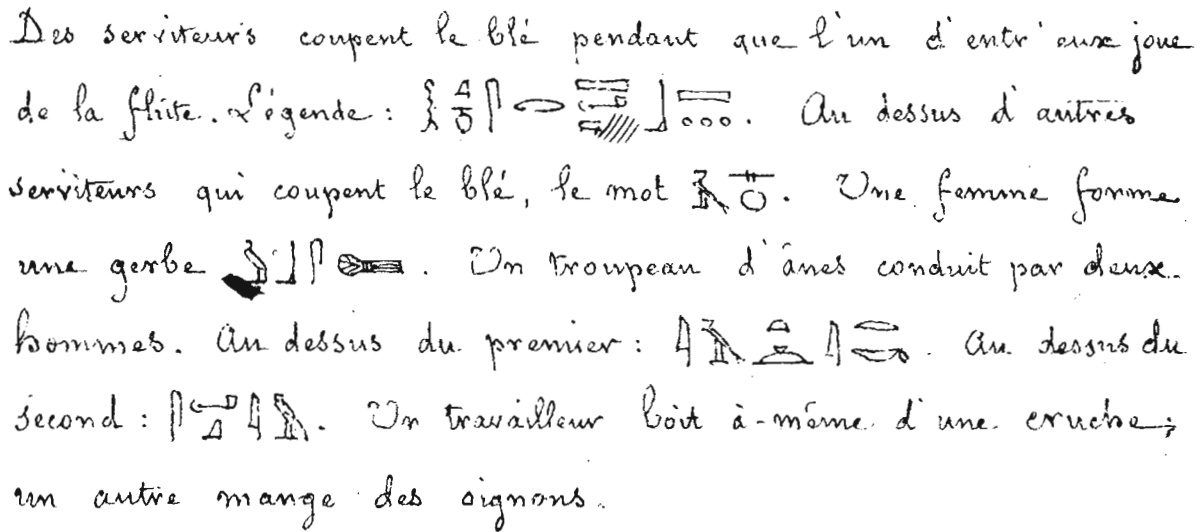 Des serviteurs coupent le blé pendant que l'un d'entr'eux joue
de la flûte. Légende : . Au dessus d'autres
serviteurs qui coupent le blé, le mot . Une femme forme
une gerbe . Un troupeau d'ânes conduit par deux
hommes. Au dessus du premier : . Au dessus du
second : . Un travailleur boit à-même d'une cruche;
un autre mange des oignons.